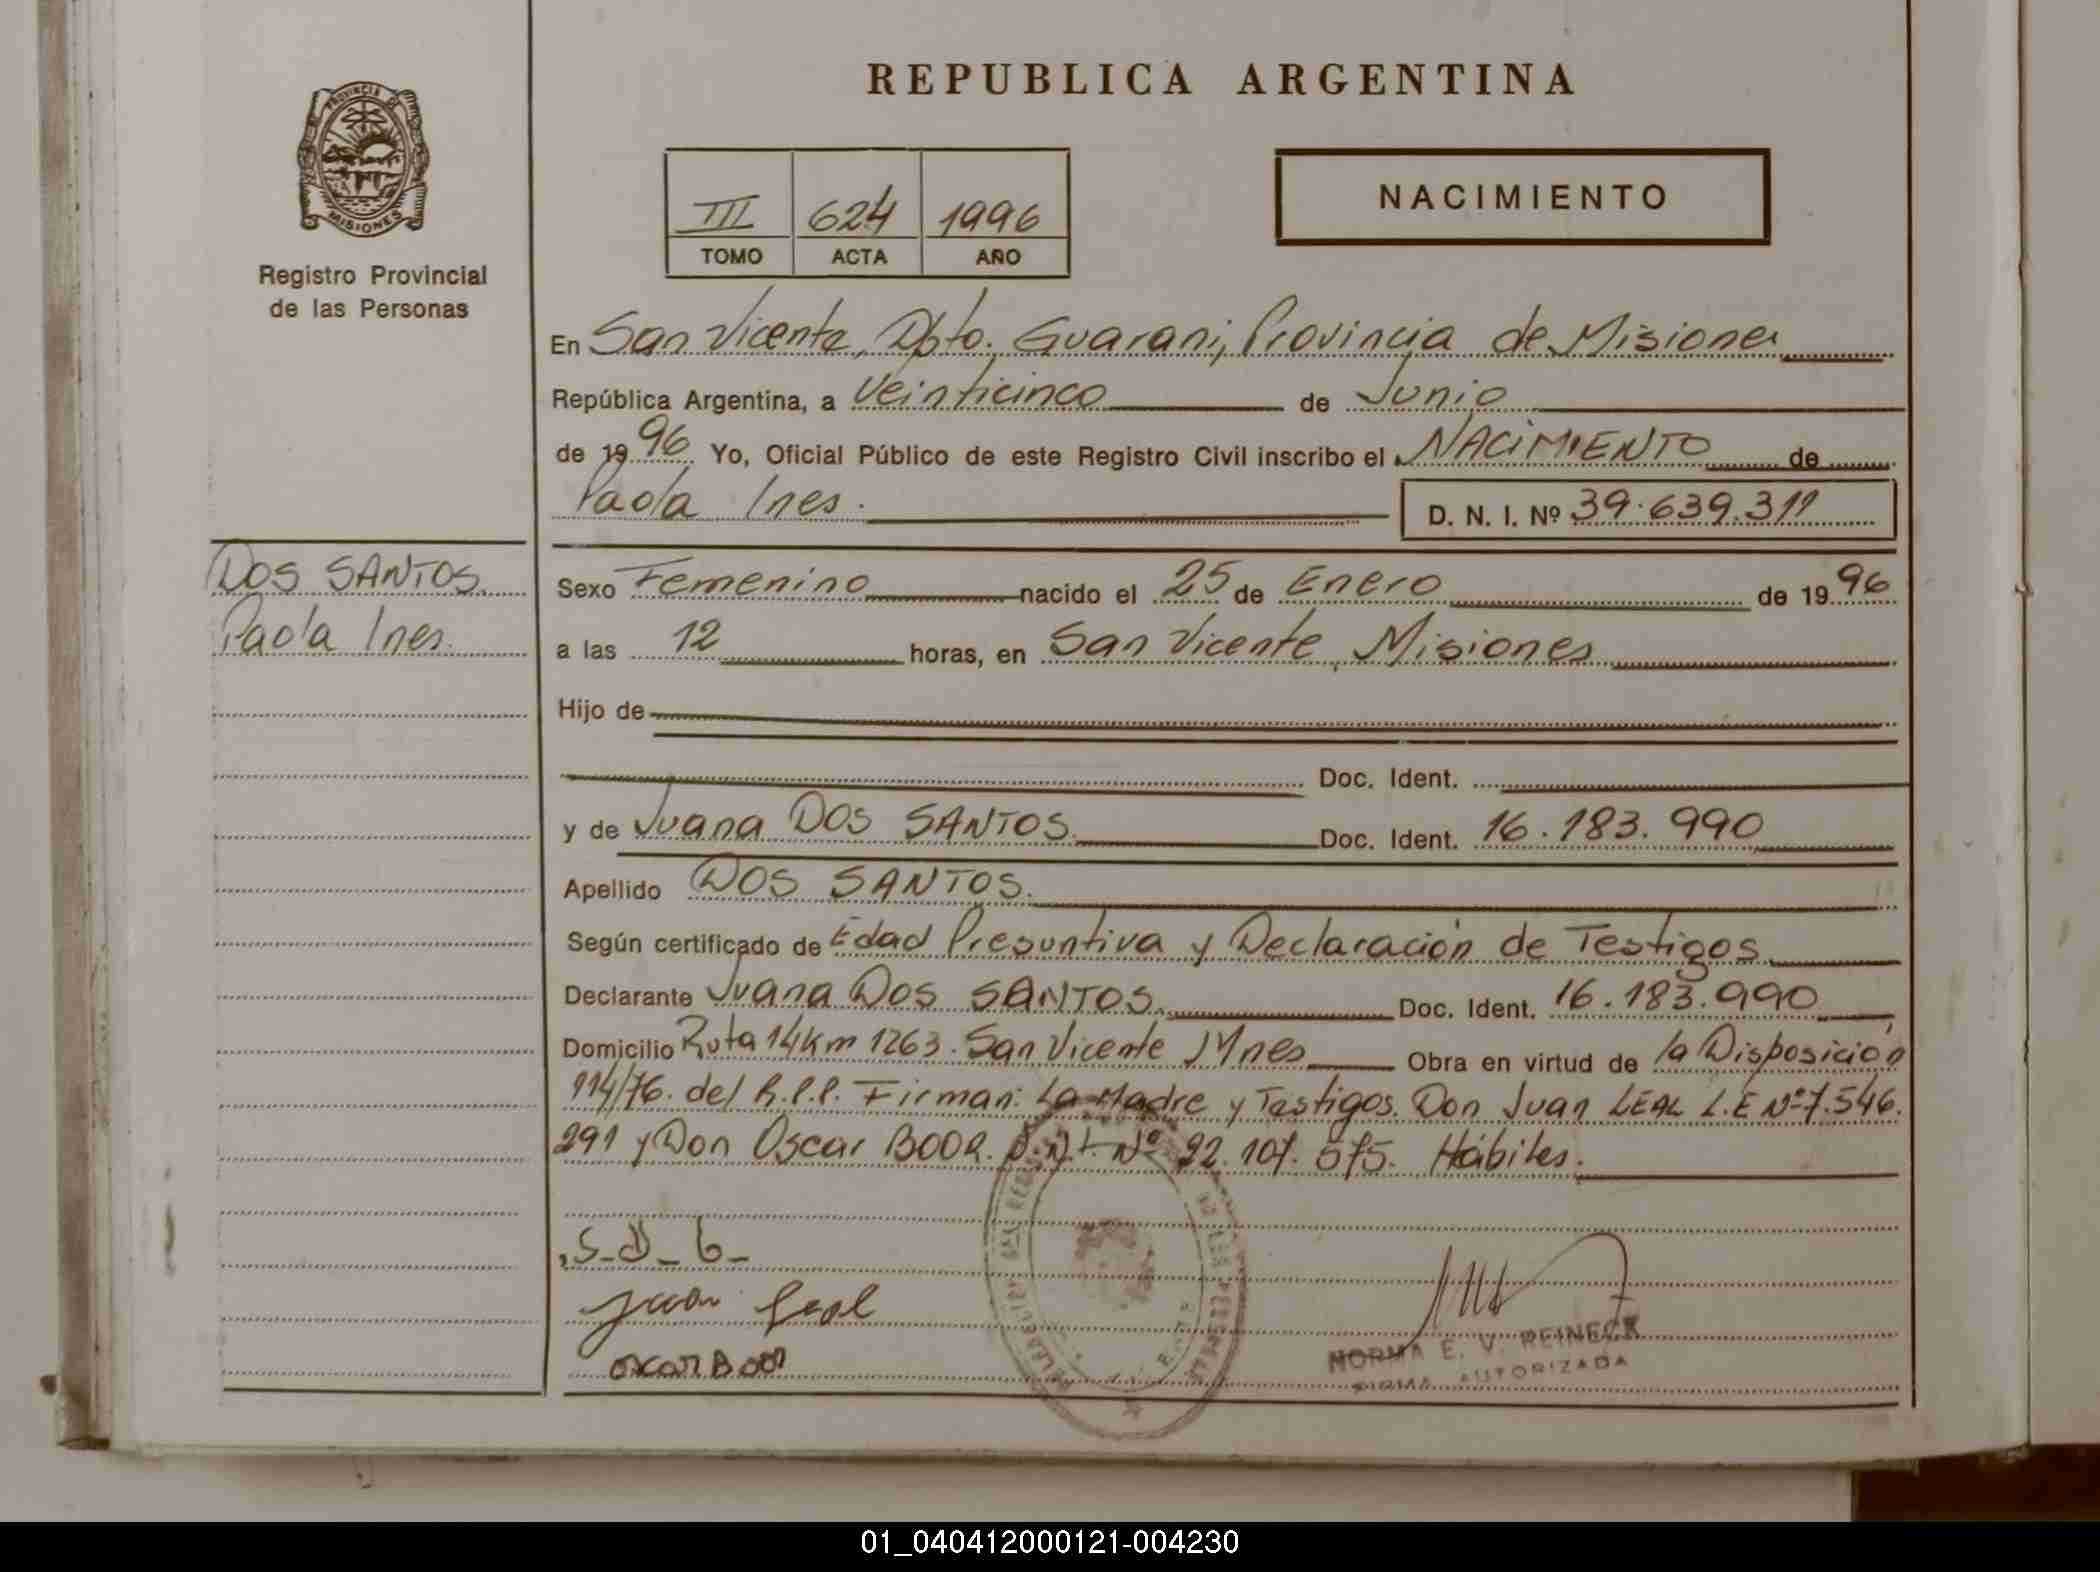 REPUBLICA ARGENTINA
PROVINCIA DE
MISIONES
Registro Provincial
de las Personas
III 624 1996
TOMO ACTA AÑO
NACIMIENTO
En San Vicente, Dpto. Guarani, Provincia de Misiones
República Argentina, a Veinticinco de Junio
de 1996 Yo, Oficial Público de este Registro Civil inscribo el NACIMIENTO de
Paola Ines. D. N. I. Nº 39.639.311
DOS SANTOS.
Paola Ines.
Sexo Femenino nacido el 25 de Enero de 1996
a las 12 horas, en San Vicente, Misiones
Hijo de
Doc. Ident.
y de Juana DOS SANTOS. Doc. Ident. 16.183.990
Apellido DOS SANTOS.
Según certificado de Edad Presuntiva y Declaración de Testigos.
Declarante Juana DOS SANTOS. Doc. Ident. 16.183.990
Domicilio Ruta 14 Km 1263. San Vicente Mnes Obra en virtud de la Disposición
114/76. del R.P.P. Firman: La Madre y Testigos. Don Juan LEAL L.E Nº 7.546.
291 y Don Oscar BOOR. D.N.I. Nº 22.107.575. Hábiles.
Juan Leal
OSCAR BOOR
NORMA E. V. REINECK
FIRMA AUTORIZADA
01_040412000121-004230